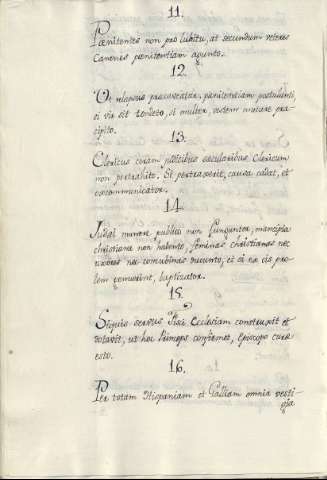 11.
Pœnitentes non pro lubitu, at secundum veteres
Canones pœnitentiam agunto.
12.
Ut relapsis præcaveatur, pœnitentiam postulanti,
si vir sit tondeto, si mulier, vestem mutare præ-
cipito.
13.
Clericus coram judicibus sæcularibus Clericum
non pertrahito, Si pertraxerit, causa cadat, et
excommunicator.
14.
Judæi munere publico non funguntor, mancipia
christiana non habento, fœminas christianas nec
uxores nec concubinas ducunto, et si ex eis pro-
lem genuerint, baptizator.
15.
Siquis servus Fisci Ecclesiam construxit et
dotavit, ut hoc Princeps confirmet, Episcopo curæ
esto.
16.
Per totam Hispaniam et Galliam omnia vesti-
gia